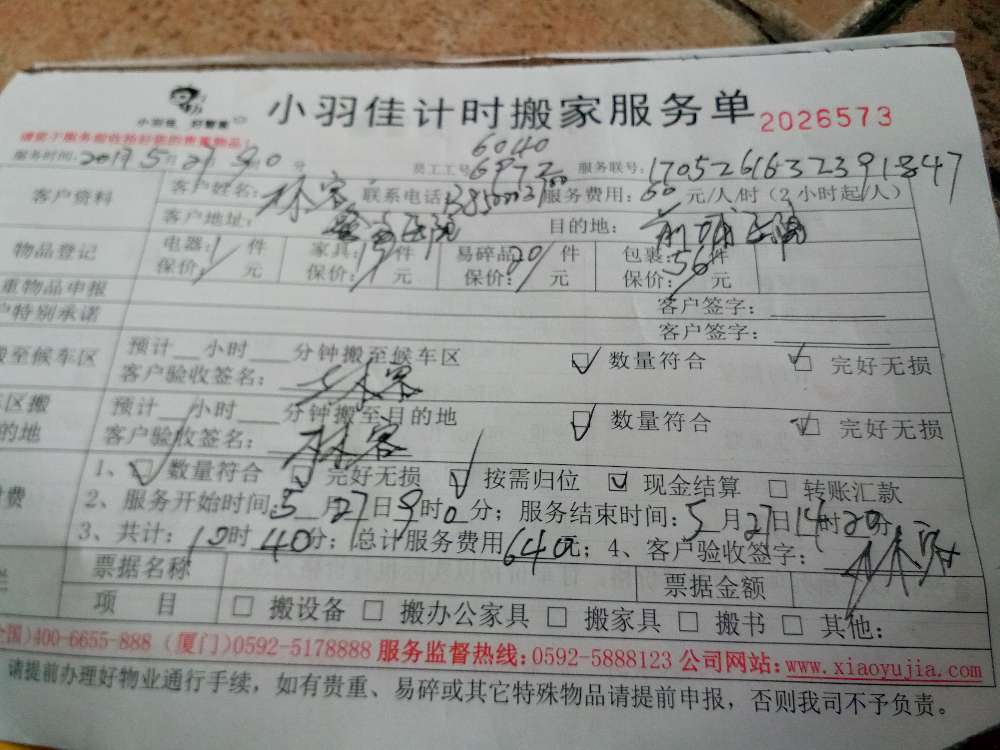 小羽佳 好管家
小羽佳计时搬家服务单 2026573
请您于服务前收拾好您的贵重物品!
6040
服务时间: 2017 5月27日9时0分 员工工号: 6972 服务联号: 170526163239184847
客户资料 客户姓名: 林客 联系电话: 服务费用: 60元/人/时(2小时起/人)
客户地址: 目的地:
物品登记 电器: 1件 家具: 件 易碎品: 20件 包裹: 56件
保价: / 元 保价: / 元 保价: / 元 保价: / 元
重物品申报 客户签字:
户特别承诺 客户签字:
搬至候车区 预计__小时__分钟搬至候车区 ☑ 数量符合 ☑ 完好无损
客户验收签名: 林客
区搬 预计__小时__分钟搬至目的地 ☑ 数量符合 ☑ 完好无损
的地 客户验收签名: 林客
1、☑ 数量符合 ☑ 完好无损 ☑ 按需归位 ☑ 现金结算 □ 转账汇款
付费 2、服务开始时间: 5月27日9时0分; 服务结束时间: 5月27日14时20分
3、共计: 10时40分; 总计服务费用640元; 4、客户验收签字: 林客
票据名称 票据金额
项 目 □ 搬设备 □ 搬办公家具 □ 搬家具 □ 搬书 □ 其他:
全国)400-6655-888 (厦门)0592-5178888 服务监督热线:0592-5888123 公司网站:www.xiaoyujia.com
请提前办理好物业通行手续，如有贵重、易碎或其它特殊物品请提前申报，否则我司不予负责。